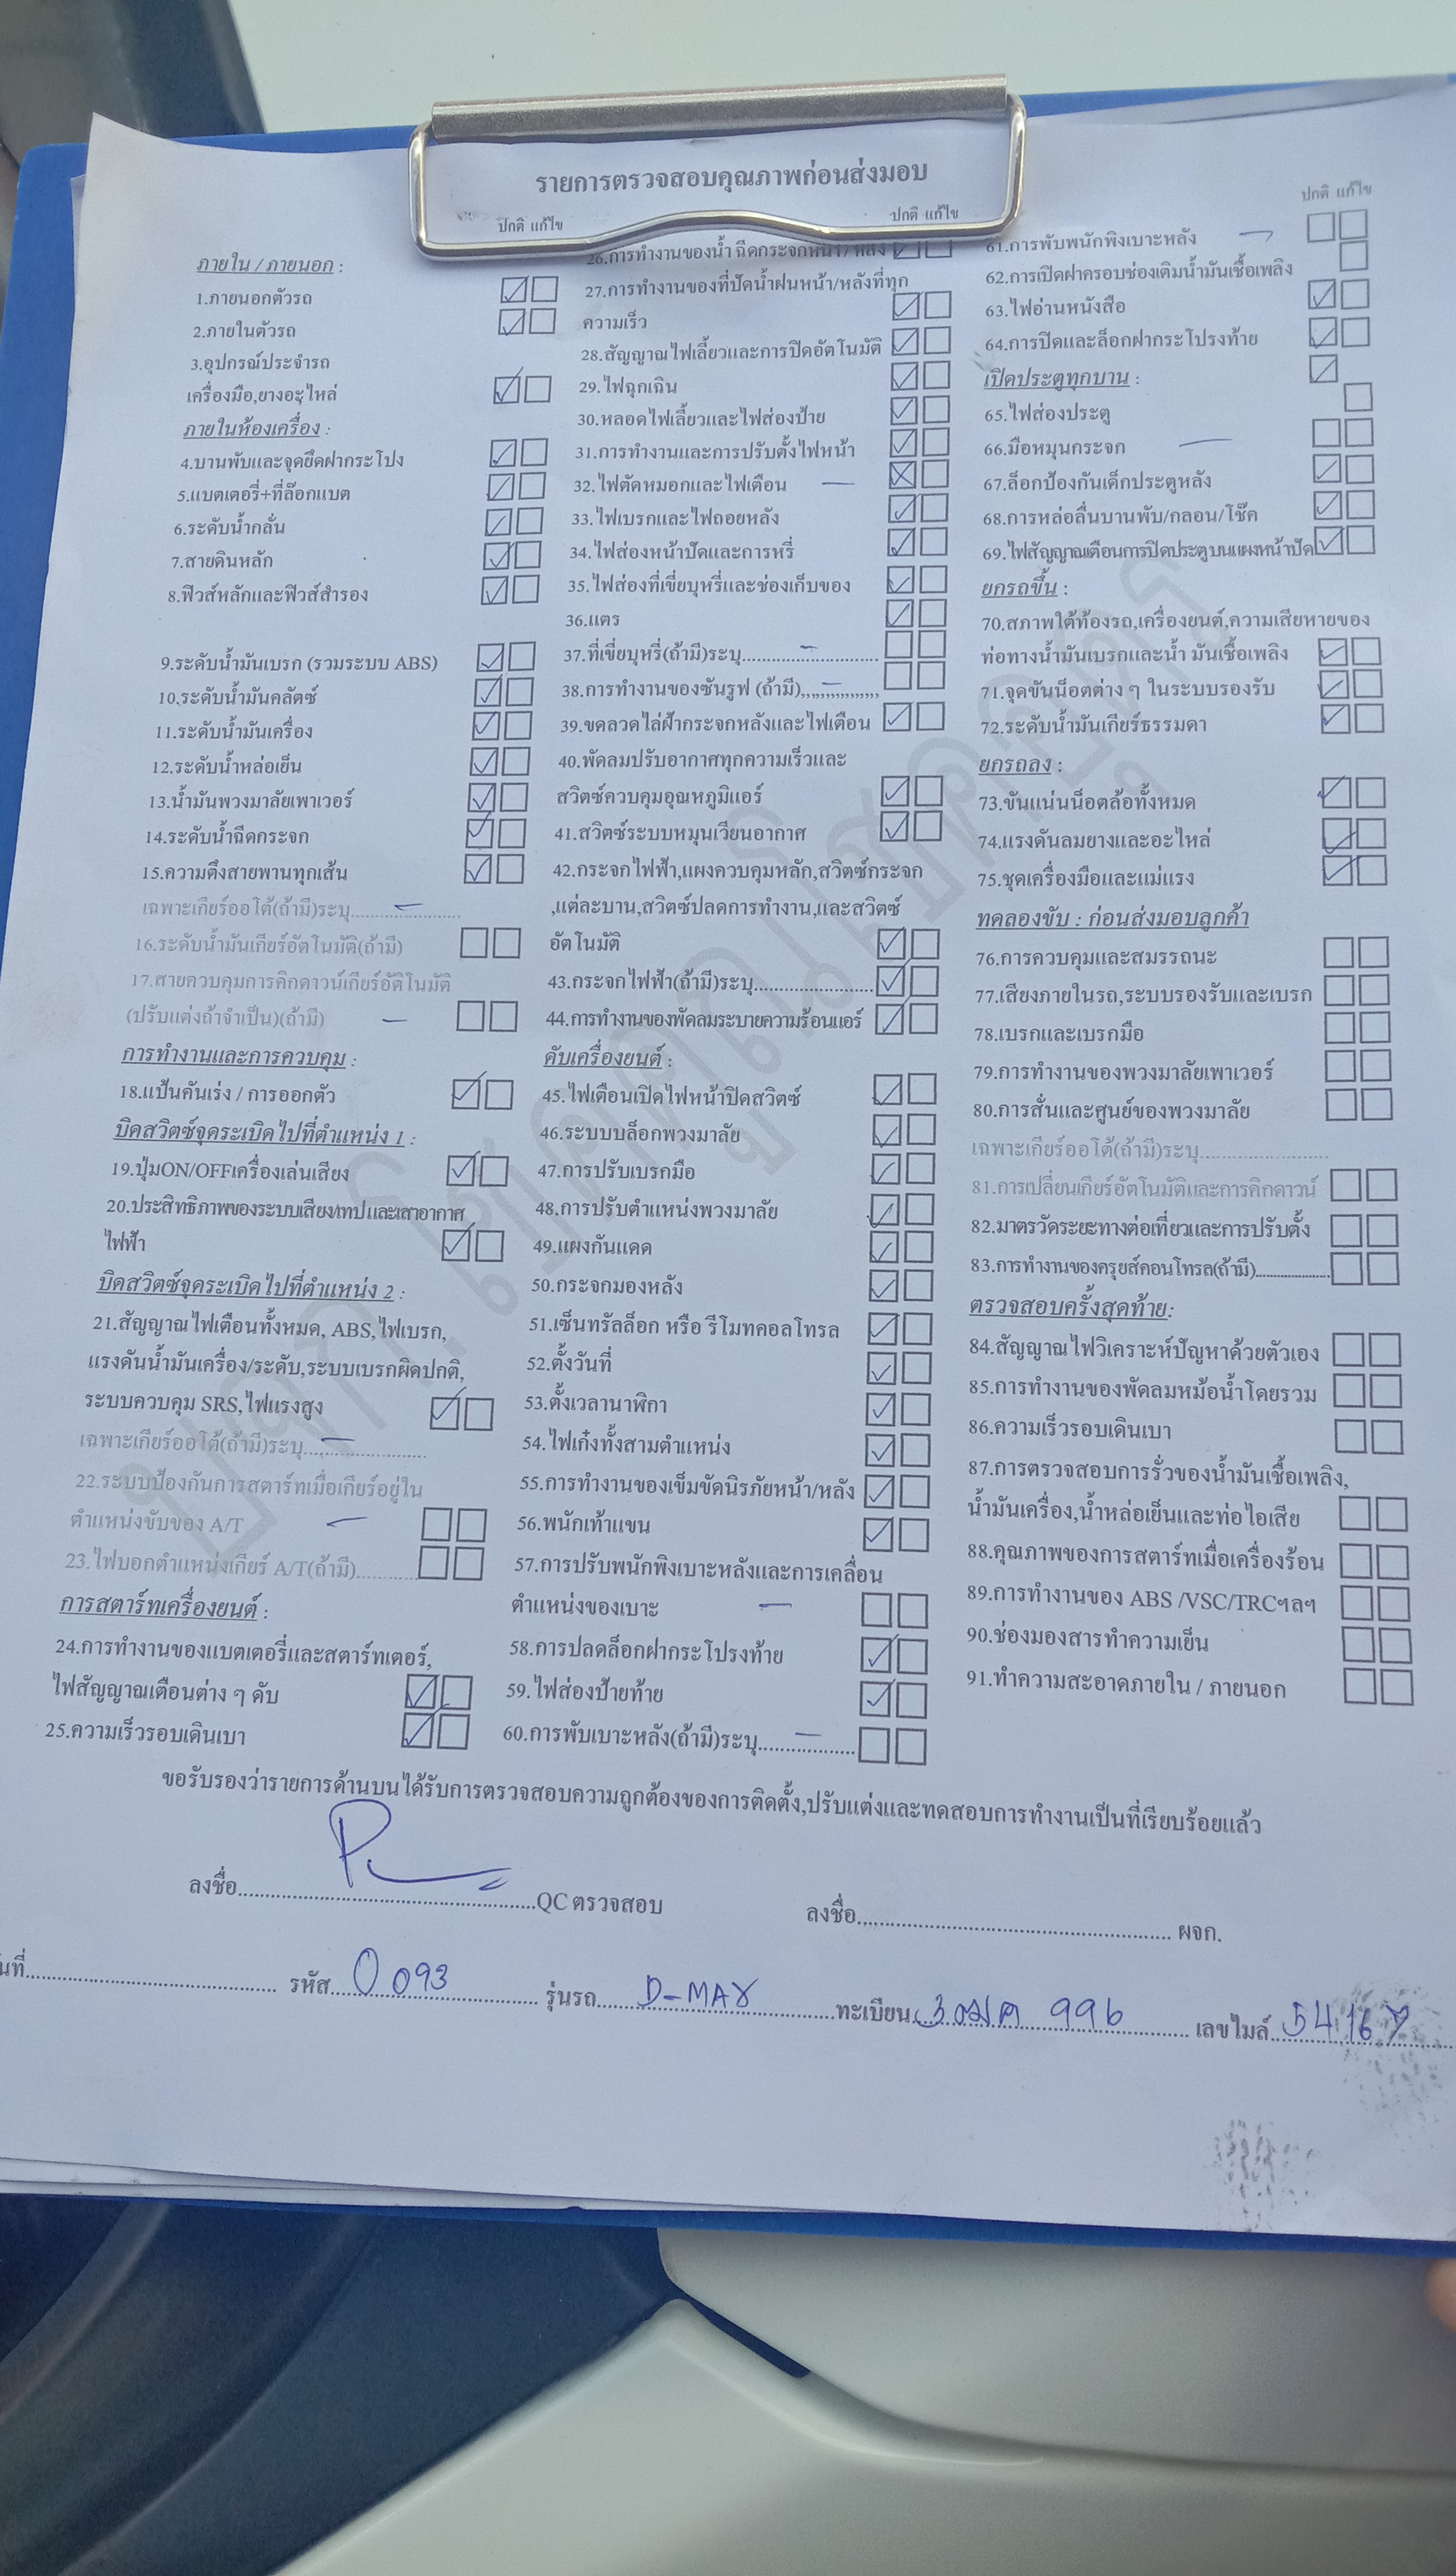 รายการตรวจสอบคุณภาพก่อนส่งมอบ
ปกติ แก้ไข
ภายใน / ภายนอก :
1.ภายนอกตัวรถ
2.ภายในตัวรถ
3.อุปกรณ์ประจำรถ
เครื่องมือ,ยางอะไหล่
ภายในห้องเครื่อง :
4.บานพับและจุดยึดฝากระโปง
5.แบตเตอรี่+ที่ล๊อกแบต
6.ระดับน้ำกลั่น
7.สายดินหลัก
8.ฟิวส์หลักและฟิวส์สำรอง
9.ระดับน้ำมันเบรก (รวมระบบ ABS)
10.ระดับน้ำมันคลัตซ์
11.ระดับน้ำมันเครื่อง
12.ระดับน้ำหล่อเย็น
13.น้ำมันพวงมาลัยเพาเวอร์
14.ระดับน้ำฉีดกระจก
15.ความตึงสายพานทุกเส้น
เฉพาะเกียร์ออโต้(ถ้ามี)ระบุ....................
16.ระดับน้ำมันเกียร์อัตโนมัติ(ถ้ามี)
17.สายควบคุมการคิกดาวน์เกียร์อัติโนมัติ
(ปรับแต่งถ้าจำเป็น)(ถ้ามี)
การทำงานและการควบคุม :
18.แป้นคันเร่ง / การออกตัว
บิดสวิตซ์จุดระเบิดไปที่ตำแหน่ง 1 :
19.ปุ่มON/OFFเครื่องเล่นเสียง
20.ประสิทธิภาพของระบบเสียง/เทปและเสาอากาศ
ไฟฟ้า
บิดสวิตซ์จุดระเบิดไปที่ตำแหน่ง 2 :
21.สัญญาณไฟเตือนทั้งหมด, ABS,ไฟเบรก,
แรงดันน้ำมันเครื่อง/ระดับ,ระบบเบรกผิดปกติ,
ระบบควบคุม SRS,ไฟแรงสูง
เฉพาะเกียร์ออโต้(ถ้ามี)ระบุ....................
22.ระบบป้องกันการสตาร์ทเมื่อเกียร์อยู่ใน
ตำแหน่งขับของ A/T
23.ไฟบอกตำแหน่งเกียร์ A/T(ถ้ามี)..........
การสตาร์ทเครื่องยนต์ :
24.การทำงานของแบตเตอรี่และสตาร์ทเตอร์,
ไฟสัญญาณเตือนต่าง ๆ ดับ
25.ความเร็วรอบเดินเบา
ปกติ แก้ไข
26.การทำงานของน้ำ ฉีดกระจกหน้า / หลัง
27.การทำงานของที่ปัดน้ำฝนหน้า/หลังที่ทุก
ความเร็ว
28.สัญญาณไฟเลี้ยวและการปิดอัตโนมัติ
29.ไฟฉุกเฉิน
30.หลอดไฟเลี้ยวและไฟส่องป้าย
31.การทำงานและการปรับตั้งไฟหน้า
32.ไฟตัดหมอกและไฟเตือน
33.ไฟเบรกและไฟถอยหลัง
34.ไฟส่องหน้าปัดและการหรี่
35.ไฟส่องที่เขี่ยบุหรี่และช่องเก็บของ
36.แตร
37.ที่เขี่ยบุหรี่(ถ้ามี)ระบุ..............................
38.การทำงานของซันรูฟ (ถ้ามี),,,,,,,,,,,,,,,,
39.ขดลวดไล่ฝ้ากระจกหลังและไฟเตือน
40.พัดลมปรับอากาศทุกความเร็วและ
สวิตซ์ควบคุมอุณหภูมิแอร์
41.สวิตซ์ระบบหมุนเวียนอากาศ
42.กระจกไฟฟ้า,แผงควบคุมหลัก,สวิตซ์กระจก
,แต่ละบาน,สวิตซ์ปลดการทำงาน,และสวิตซ์
อัตโนมัติ
43.กระจกไฟฟ้า(ถ้ามี)ระบุ..........................
44.การทำงานของพัดลมระบายความร้อนแอร์
ดับเครื่องยนต์ :
45.ไฟเตือนเปิดไฟหน้าปิดสวิตซ์
46.ระบบบล็อกพวงมาลัย
47.การปรับเบรกมือ
48.การปรับตำแหน่งพวงมาลัย
49.แผงกันแดด
50.กระจกมองหลัง
51.เซ็นทรัลล็อก หรือ รีโมทคอลโทรล
52.ตั้งวันที่
53.ตั้งเวลานาฬิกา
54.ไฟเก๋งทั้งสามตำแหน่ง
55.การทำงานของเข็มขัดนิรภัยหน้า/หลัง
56.พนักเท้าแขน
57.การปรับพนักพิงเบาะหลังและการเคลื่อน
ตำแหน่งของเบาะ
58.การปลดล็อกฝากระโปรงท้าย
59.ไฟส่องป้ายท้าย
60.การพับเบาะหลัง(ถ้ามี)ระบุ....................
ปกติ แก้ไข
61.การพับพนักพิงเบาะหลัง
62.การเปิดฝาครอบช่องเติมน้ำมันเชื้อเพลิง
63.ไฟอ่านหนังสือ
64.การปิดและล็อกฝากระโปรงท้าย
เปิดประตูทุกบาน :
65.ไฟส่องประตู
66.มือหมุนกระจก
67.ล็อกป้องกันเด็กประตูหลัง
68.การหล่อลื่นบานพับ/กลอน/โช๊ค
69.ไฟสัญญาณเตือนการปิดประตูบนแผงหน้าปัด
ยกรถขึ้น :
70.สภาพใต้ท้องรถ,เครื่องยนต์,ความเสียหายของ
ท่อทางน้ำมันเบรกและน้ำ มันเชื้อเพลิง
71.จุดขันน็อตต่าง ๆ ในระบบรองรับ
72.ระดับน้ำมันเกียร์ธรรมดา
ยกรถลง :
73.ขันแน่นน็อตล้อทั้งหมด
74.แรงดันลมยางและอะไหล่
75.ชุดเครื่องมือและแม่แรง
ทดลองขับ : ก่อนส่งมอบลูกค้า
76.การควบคุมและสมรรถนะ
77.เสียงภายในรถ,ระบบรองรับและเบรก
78.เบรกและเบรกมือ
79.การทำงานของพวงมาลัยเพาเวอร์
80.การสั่นและศูนย์ของพวงมาลัย
เฉพาะเกียร์ออโต้(ถ้ามี)ระบุ..........................
81.การเปลี่ยนเกียร์อัตโนมัติและการคิกดาวน์
82.มาตรวัดระยะทางต่อเที่ยวและการปรับตั้ง
83.การทำงานของครุยส์คอนโทรล(ถ้ามี)....................
ตรวจสอบครั้งสุดท้าย:
84.สัญญาณไฟวิเคราะห์ปัญหาด้วยตัวเอง
85.การทำงานของพัดลมหม้อน้ำโดยรวม
86.ความเร็วรอบเดินเบา
87.การตรวจสอบการรั่วของน้ำมันเชื้อเพลิง,
น้ำมันเครื่อง,น้ำหล่อเย็นและท่อไอเสีย
88.คุณภาพของการสตาร์ทเมื่อเครื่องร้อน
89.การทำงานของ ABS /VSC/TRCฯลฯ
90.ช่องมองสารทำความเย็น
91.ทำความสะอาดภายใน / ภายนอก
ขอรับรองว่ารายการด้านบนได้รับการตรวจสอบความถูกต้องของการติดตั้ง,ปรับแต่งและทดสอบการทำงานเป็นที่เรียบร้อยแล้ว
ลงชื่อ..................................................QC ตรวจสอบ ลงชื่อ.................................................. ผจก.
นที่........................................ รหัส 0093 รุ่นรถ D-MAX ทะเบียน 3ฒค 996 เลขไมล์ 54167